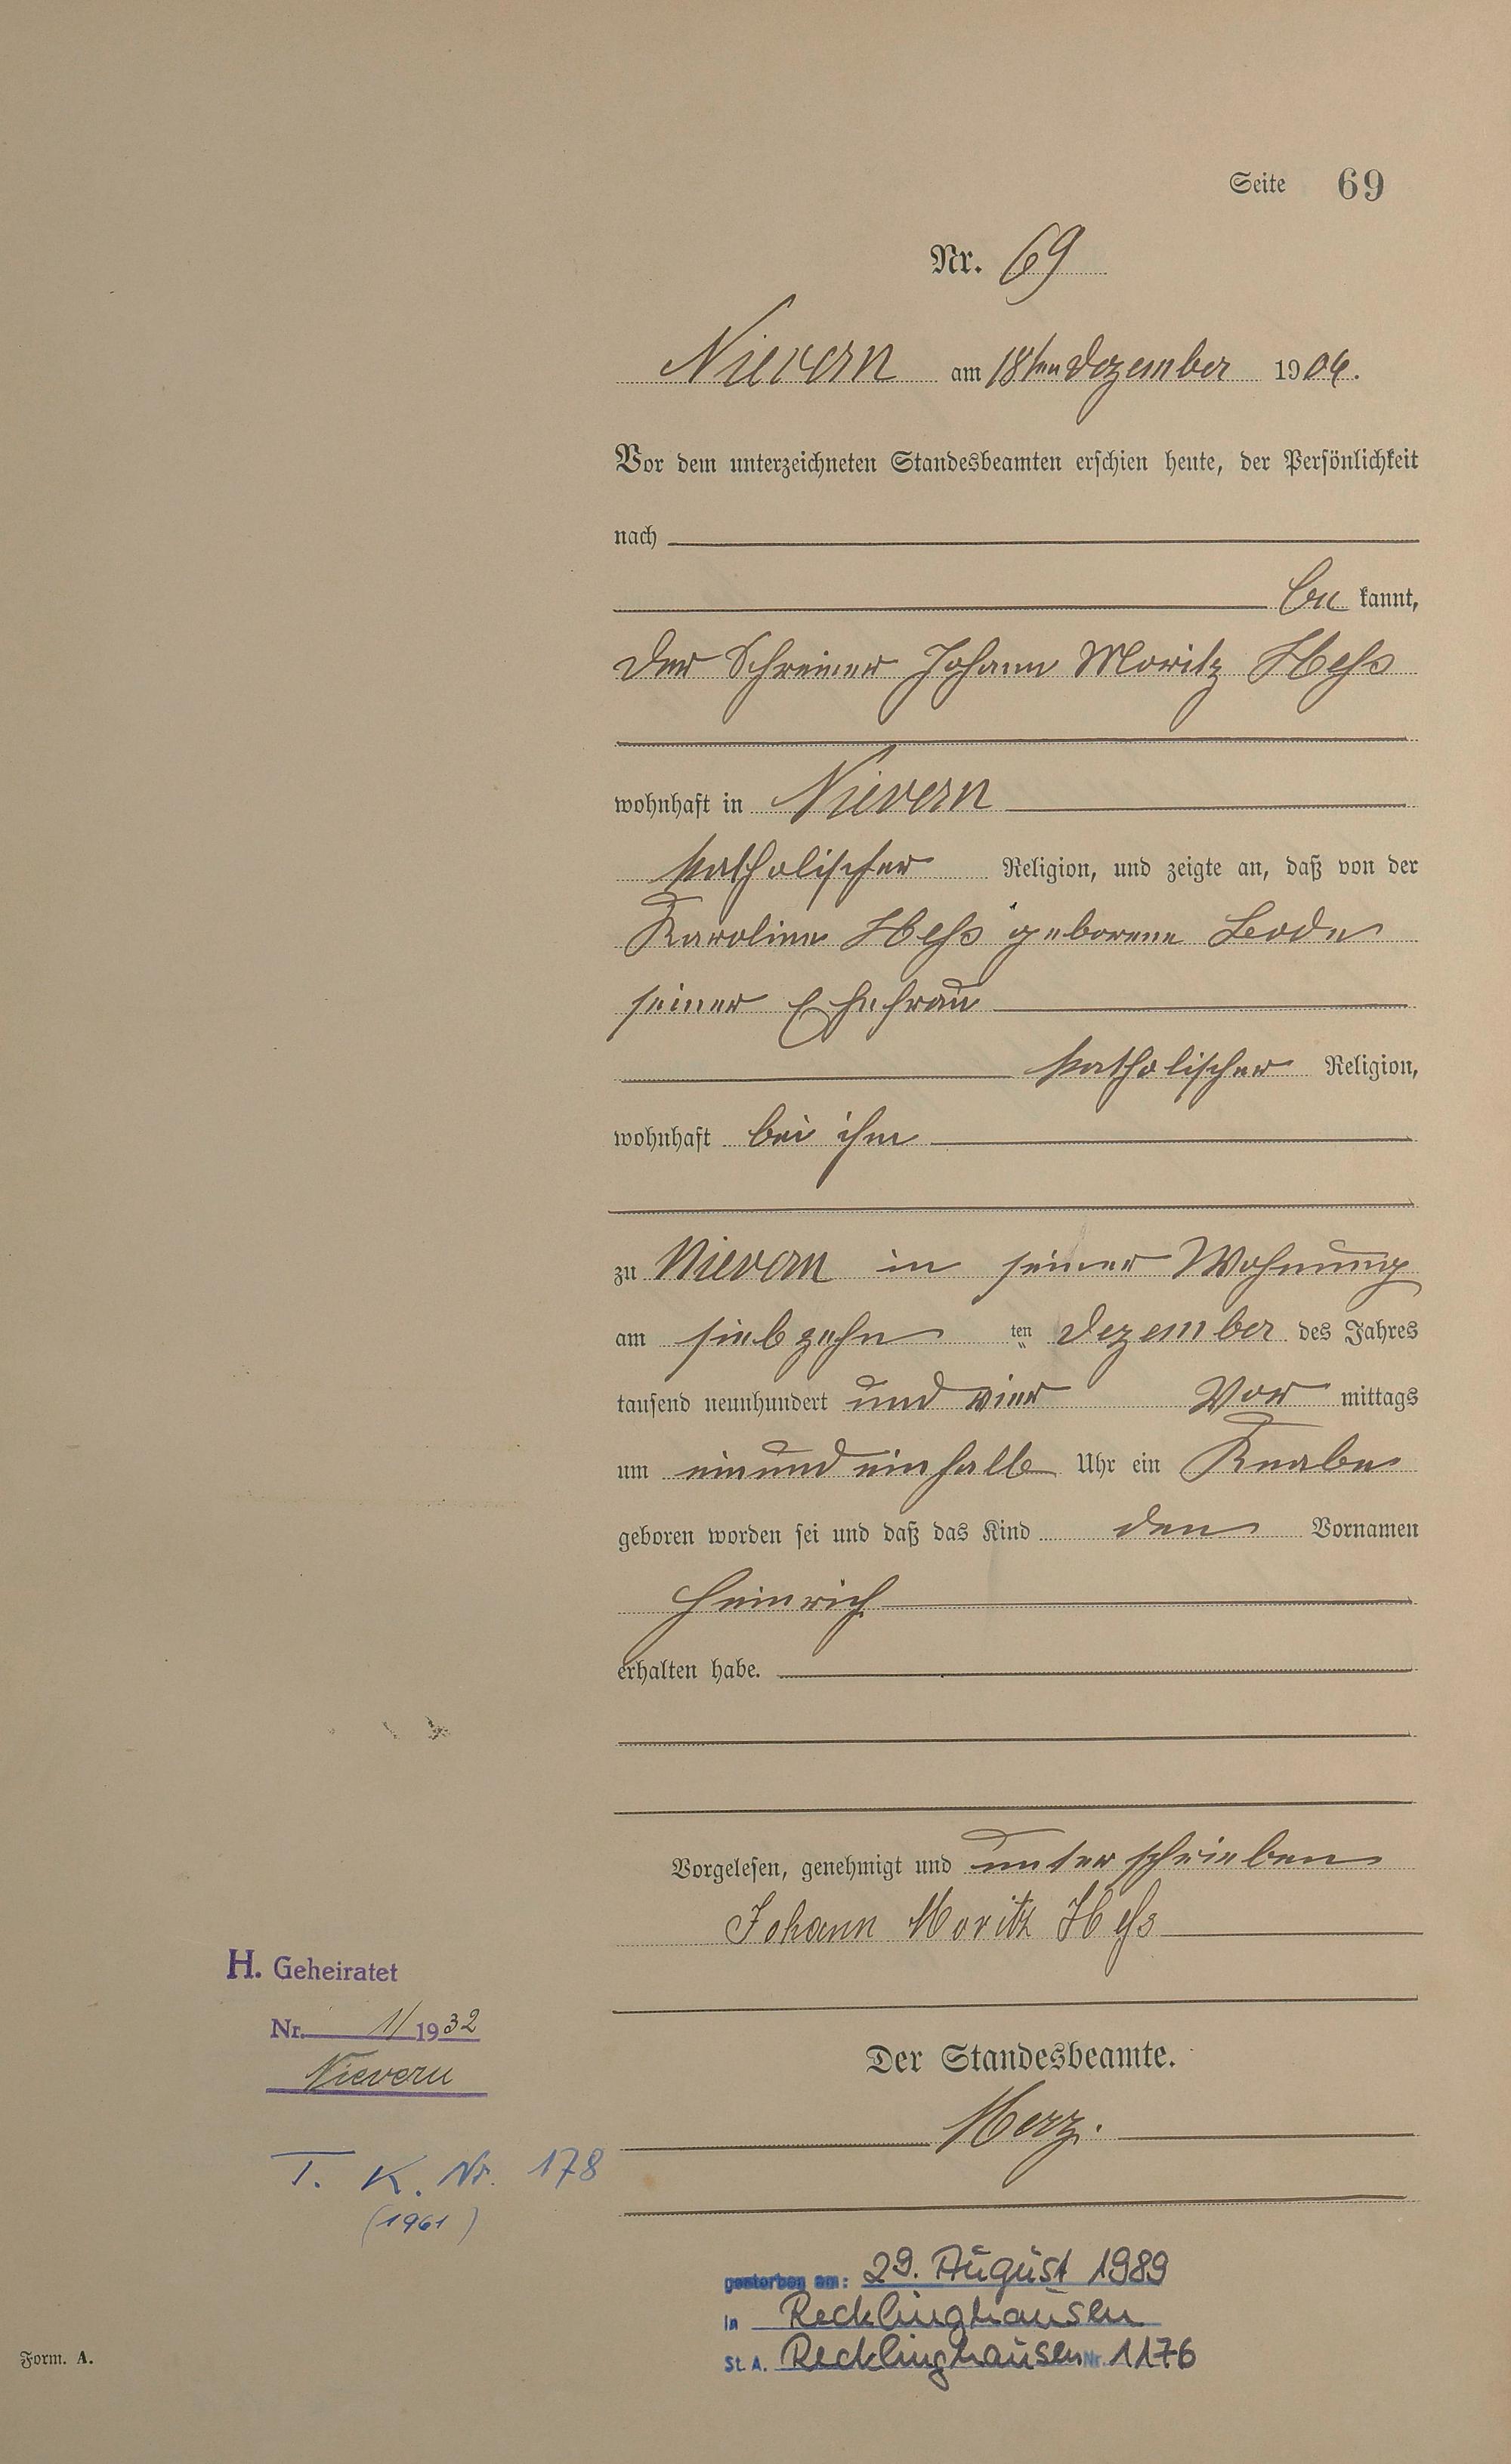 Seite 69
Nr. 69
Nievern am 18ten Dezember 1904.
Vor dem unterzeichneten Standesbeamten erschien heute, der Persönlichkeit
nach
be kannt,
der Schreiner Johann Moritz Heß
wohnhaft in Nievern
katholischer Religion, und zeigte an, daß von der
Karoline Heß geborene Bode
seiner Ehefrau
katholischer Religion,
wohnhaft bei ihm
zu Nievern in seiner Wohnung
am siebzehn ten Dezember des Jahres
tausend neunhundert und vier Vor mittags
um einundeinhalb Uhr ein Knabe
geboren worden sei und daß das Kind den Vornamen
Heinrich
erhalten habe.
Vorgelesen, genehmigt und unterschrieben
Johann Moritz Heß
H. Geheiratet
Nr. 1/1932
Nievern
Der Standesbeamte.
Merz.
T. K. Nr. 178
(1961)
gestorben am: 29. August 1989
in Recklinghausen
St. A. Recklinghausen Nr. 1176
Form. A.